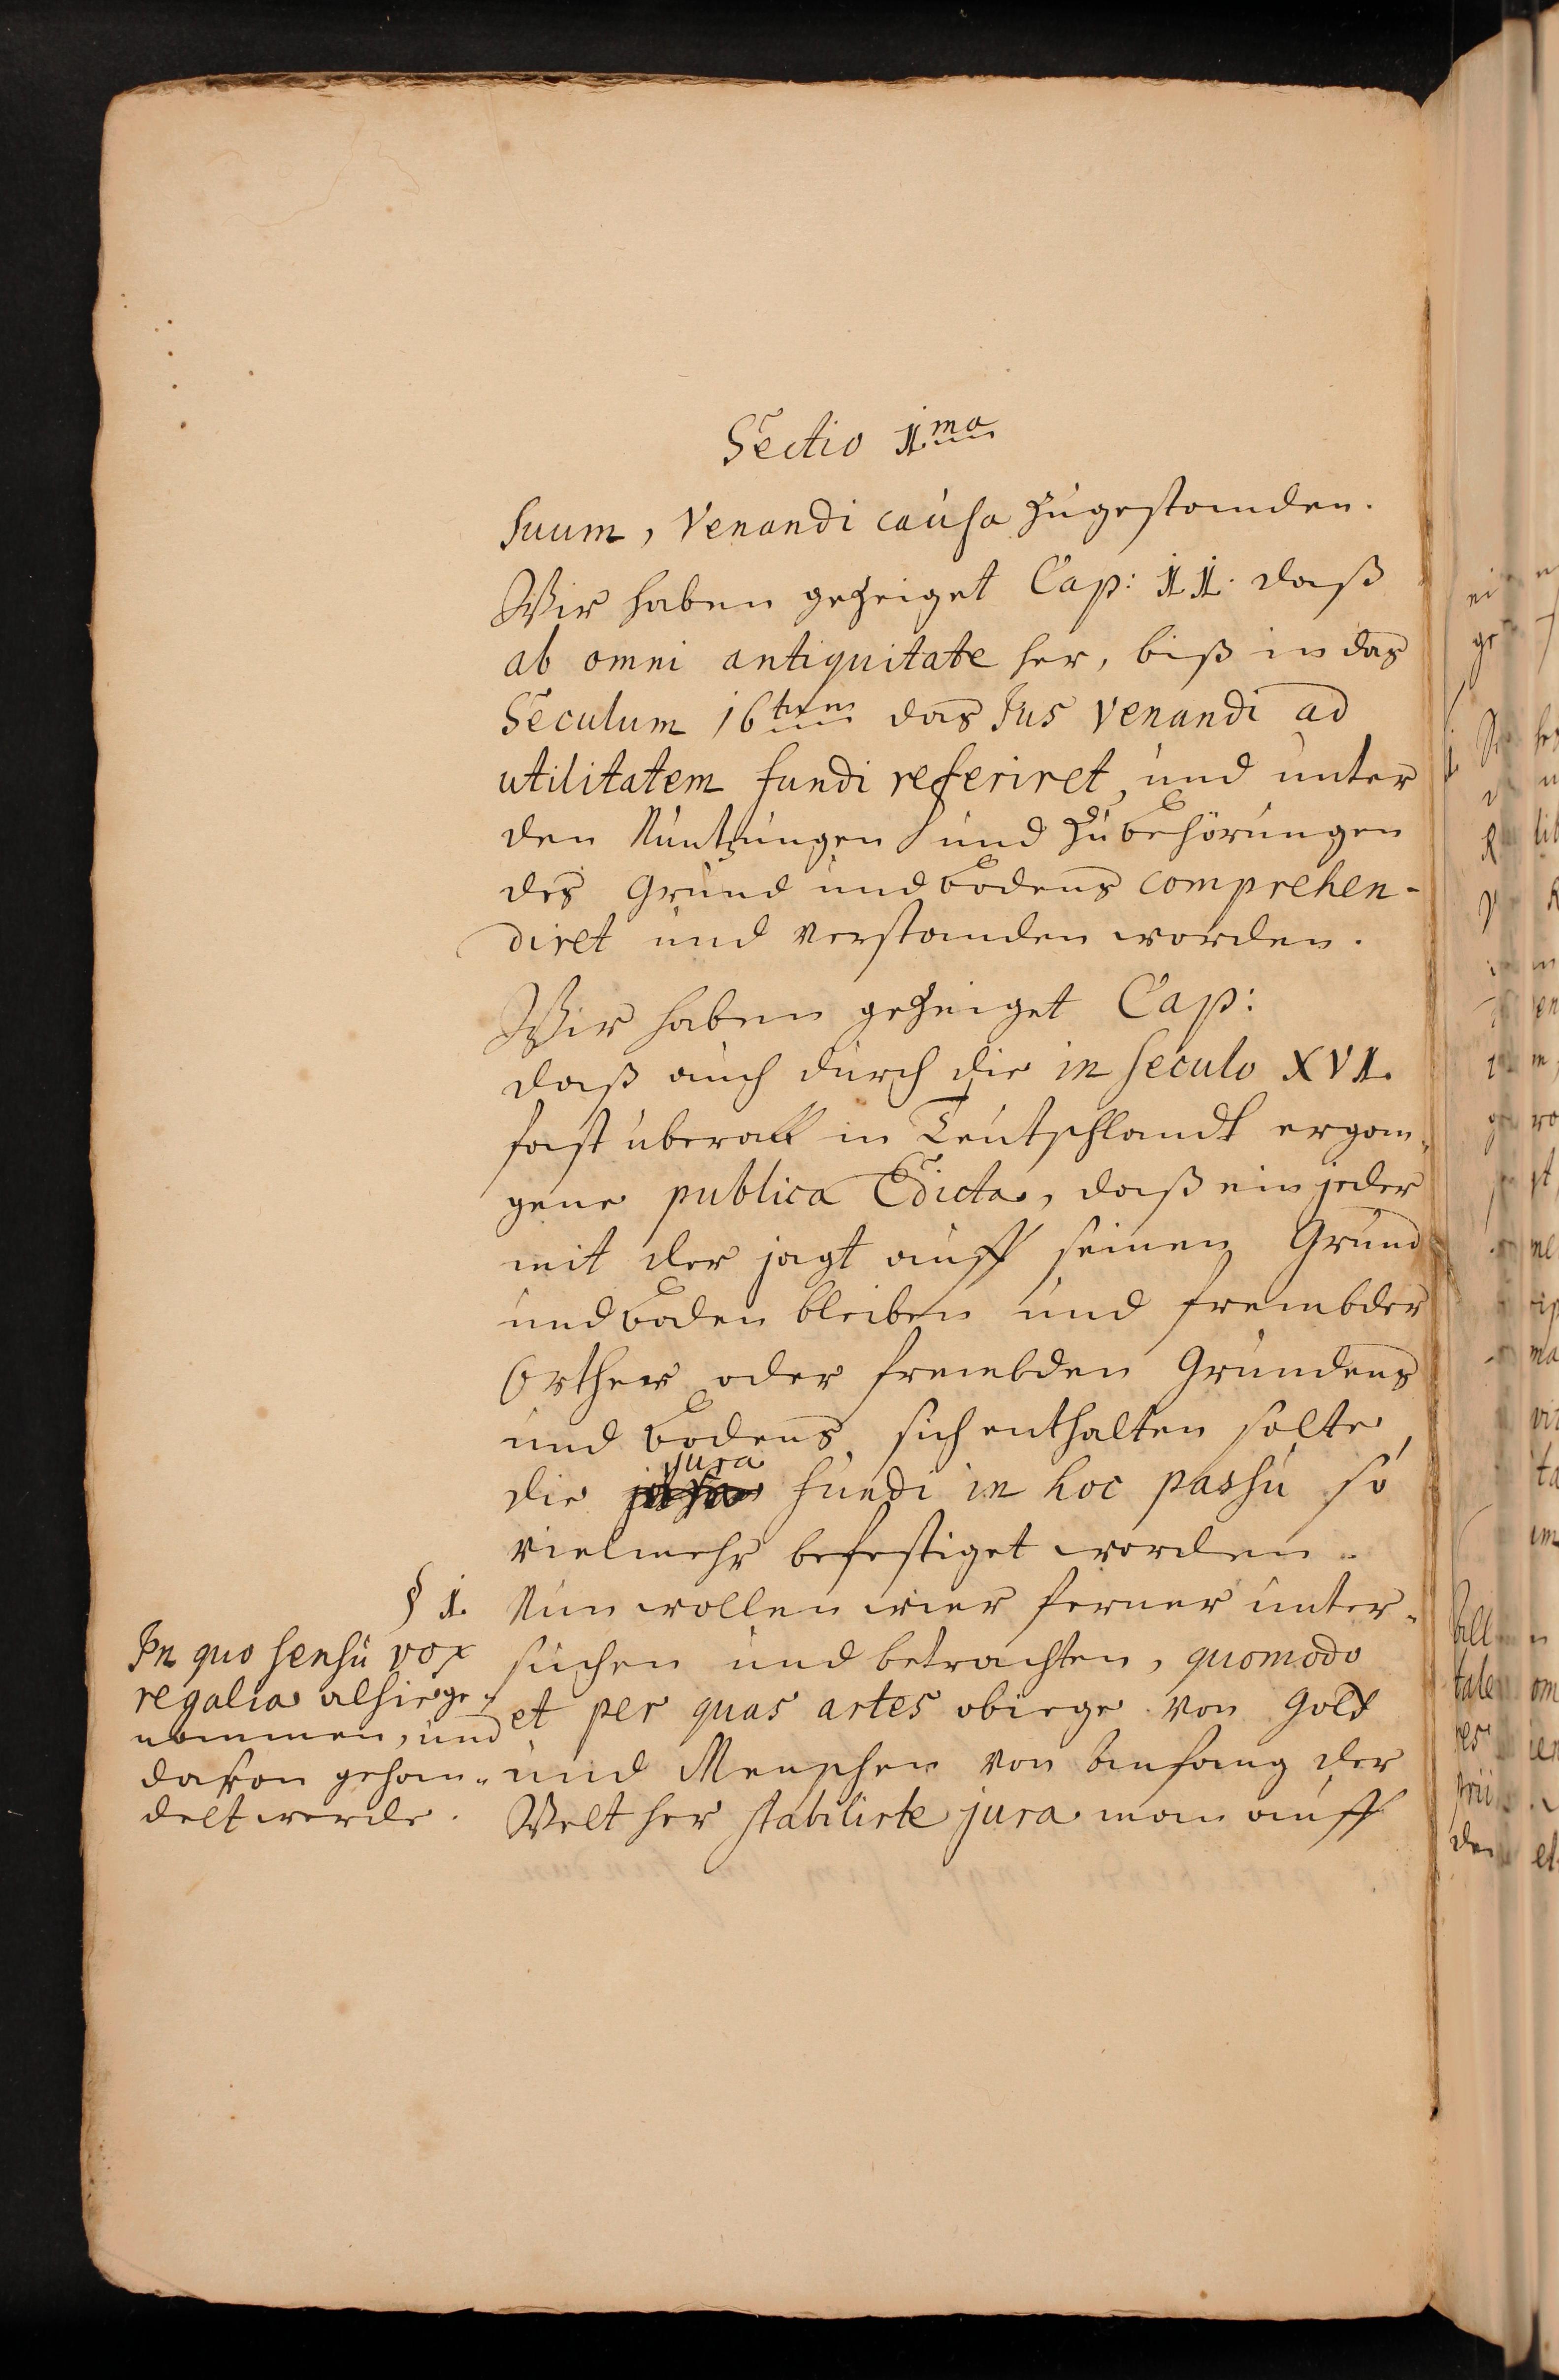 Sectio 1.ma
suum, Venandi causa zugestanden.
Wir haben gezeiget Cap: 11. daß
ab omni antiquitate her, biß in das
Seculum 16tum das Jus Venandi ad
utilitatem fundi referiret, und unter
den Nuntzungen und Zubehörungen
des Grund und Bodens comprehen-
diret und verstanden worden.
Wir haben gezeiget Cap:
daß auch durch die in seculo XVI.
fast uberall in Teutschlandt ergan-
gene publica Edicta, daß ein jeder
mit der jagt auff seinen Grund
und Boden bleiben und frembder
Orther oder frembden Grundens
und Bodens, sich enthalten solte,
die jura fundi in hoc passu so
vielmehr befestiget worden.
§ 1.
In quo sensu vox
regalia alhie ge-
nommen, und
davon gehan-
delt werde.
Nun wollen wier ferner unter-
suchen und betrachten, quomodo
et per quas artes obiege von Gott
und Menschen von Anfang der
Welt her stabilirte jura man auff